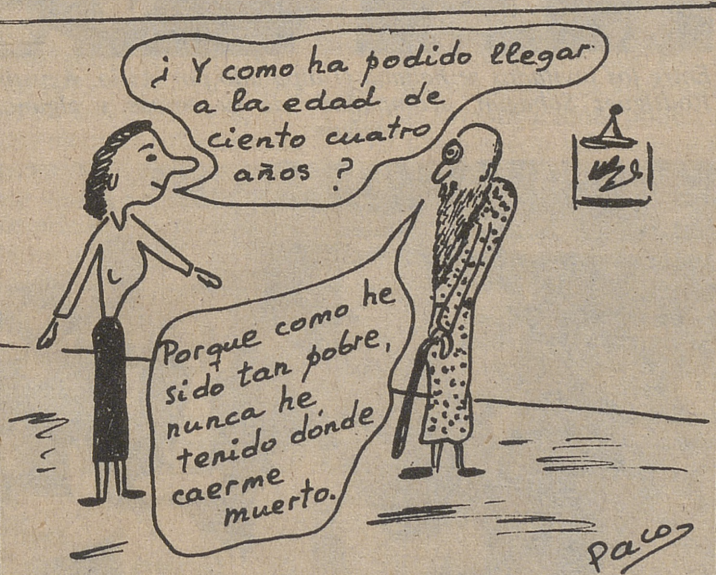 ¿ Y como ha podido llegar
a la edad de
ciento cuatro
años ?
Porque como he
sido tan pobre,
nunca he
tenido dónde
caerme
muerto.
Paco